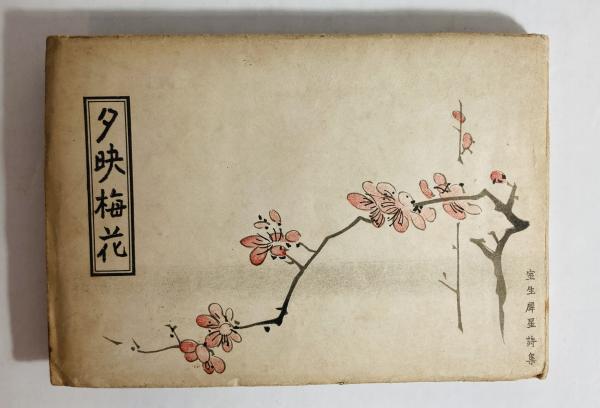 夕映梅花
室生犀星詩集